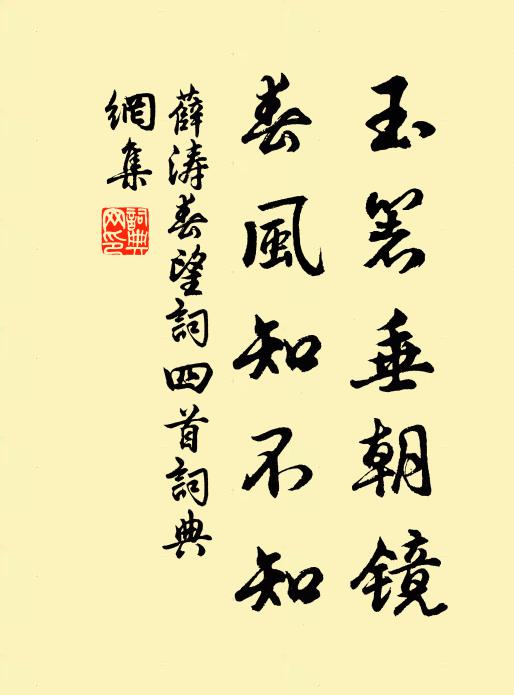 玉箸垂朝镜
春風知不知
薛涛春望詞四首詞典
網集
詞典网印